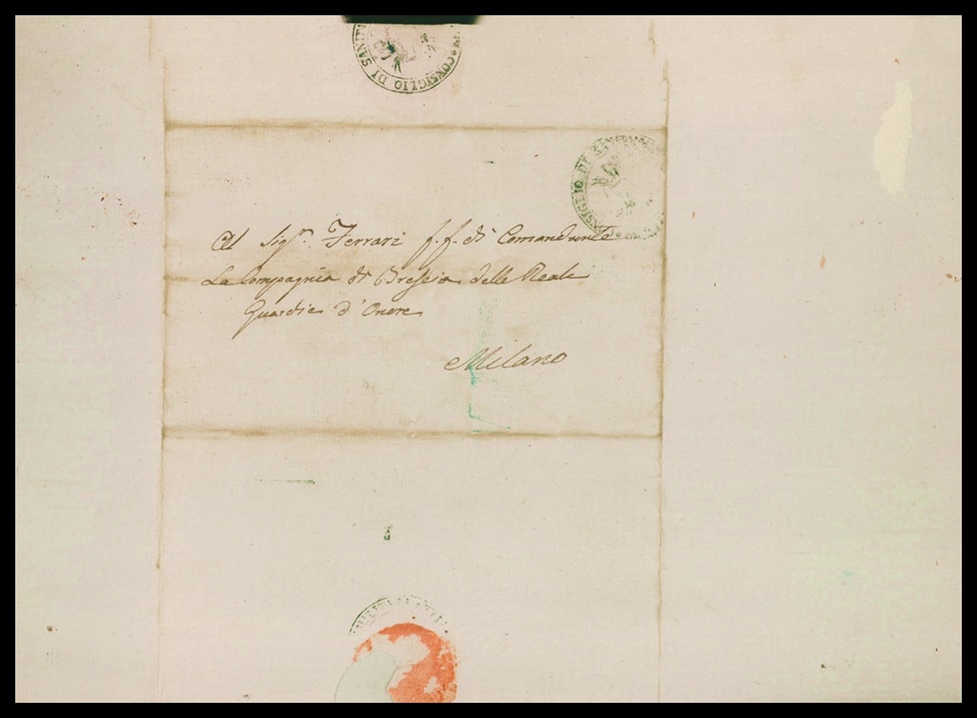 CONSIGLIO DI SANITA
CONSIGLIO DI SANITA
Al Sig.r Ferrari f.f. di Comandante
La Compagnia di Brescia delle Reali
Guardie d'Onore
Milano